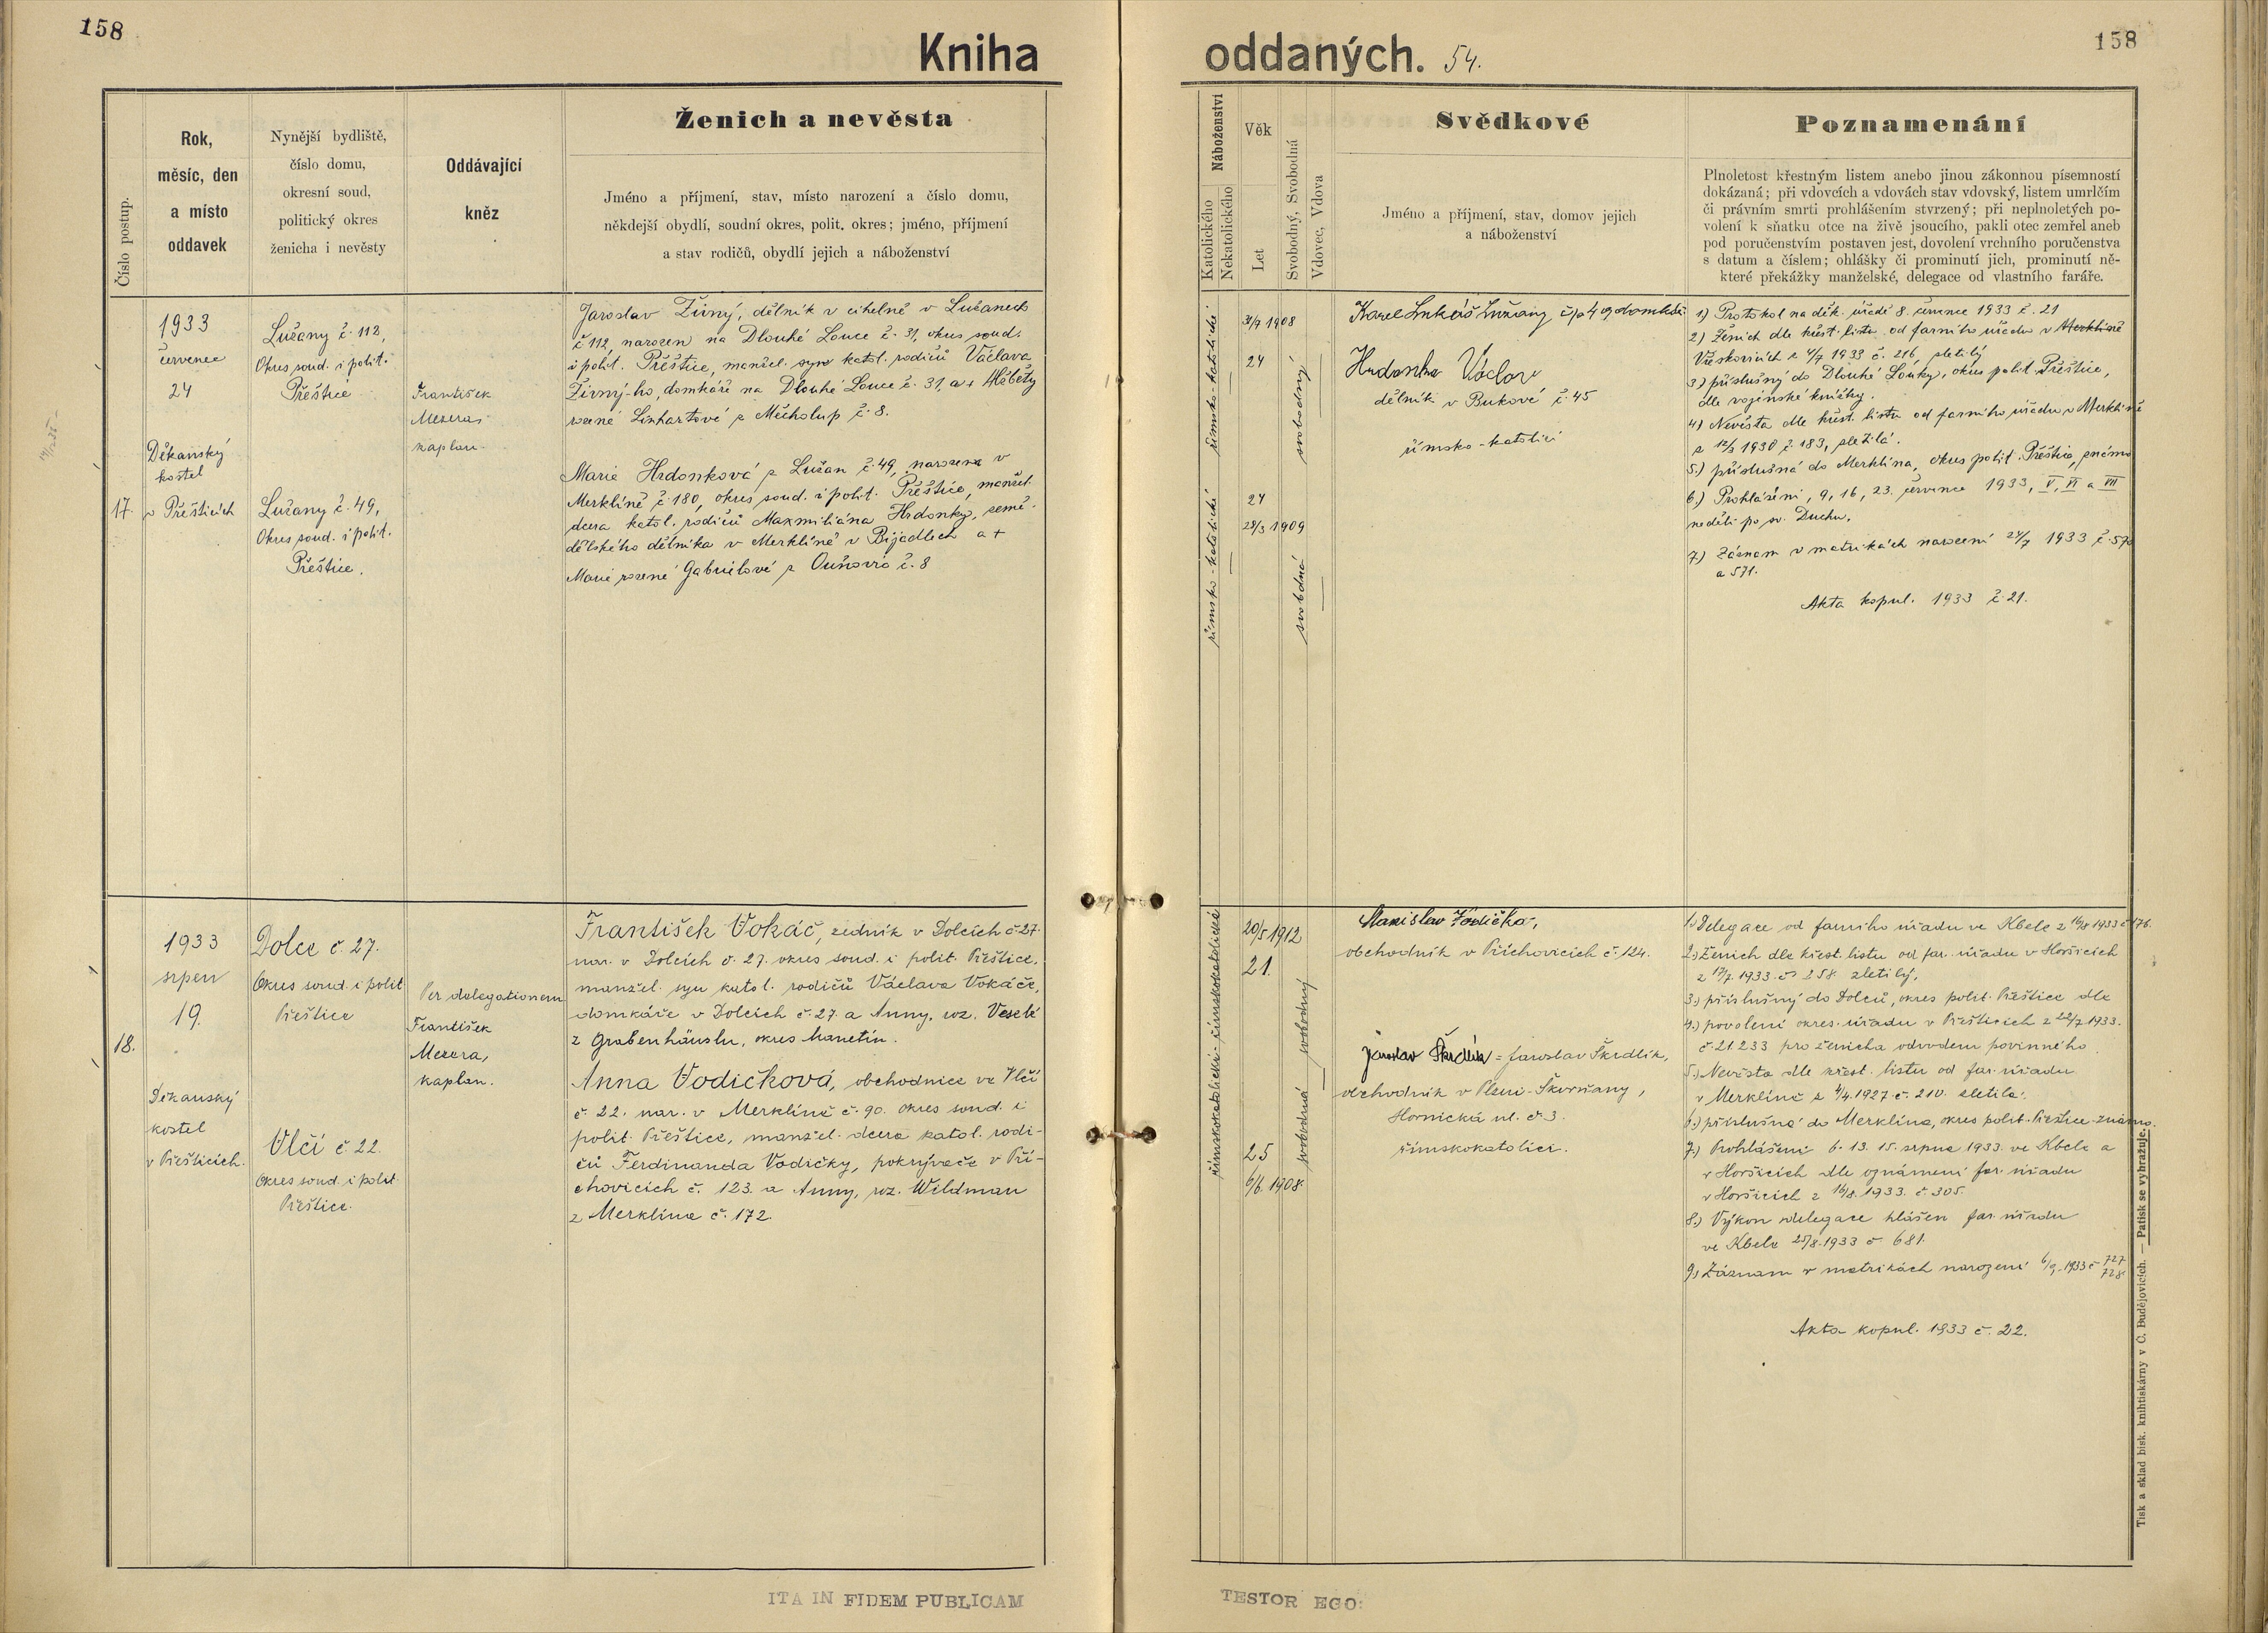 158
Kniha
Číslo postup.
Rok,
měsíc, den
a místo
oddavek
Nynější bydliště,
číslo domu,
okresní soud,
politický okres
ženicha i nevěsty
Oddávající
kněz
Ženich a nevěsta
Jméno a příjmení, stav, místo narození a číslo domu,
někdejší obydlí, soudní okres, polit. okres; jméno, příjmení
a stav rodičů, obydlí jejich a náboženství
17.
1933
červenec
24
Děkanský
kostel
v Přešticích
Lužany č. 112,
Okres soud. i polit.
Přeštice
Lužany č. 49,
Okres soud. i polit.
Přeštice.
František
Mezera,
kaplan.
Jaroslav Žirný, dělník v cihelně v Lužanech
č 112, narozen na Dlouhé Louce č. 31, okres soud.
i polit. Přeštice, manžel. syn katol. rodičů Václava
Žirný-ho, domkáře na Dlouhé Louce č. 31, a + Alžběty
rozené Linhartové z Měcholup č. 8.
Marie Hrdonková z Lužan č. 49, narozena v
Merklíně č. 180, okres soud. i polit. Přeštice, manžel.
dcera katol. rodičů Maxmiliána Hrdonky, země-
dělského dělníka v Merklíně v Bijadlech a +
Marie rozené Gabrielové z Ouňovic č. 8
18.
1933
srpen
19.
Děkanský
kostel
v Přešticích.
Dolce č. 27.
Okres soud. i polit
Přeštice
Vlčí č 22.
Okres soud. i polit.
Přeštice.
Per delegationem
František
Mezera,
kaplan.
František Vokáč, zedník v Dolcích č 27.
nar. v Dolcích č. 27. okres soud. i polit. Přeštice,
manžel. syn katol. rodičů Václava Vokáče,
domkáře v Dolcích č. 27. a Anny, roz. Veselé
z Grabenhäuslu, okres Manetín.
Anna Vodičková, obchodnice ve Vlčí
č. 22. nar. v Merklíně č. 90. okres soud. i
polit. Přeštice, manžel. dcera katol. rodi-
čů Ferdinanda Vodičky, pokrývače v Při-
chovicích č. 123. a Anny, roz. Wildman
z Merklína č. 172.
ITA IN FIDEM PUBLICAM
158
oddaných. 54.
Náboženství
Katolického
Nekatolického
Věk
Let
Svobodný, Svobodná
Vdovec, Vdova
Svědkové
Jméno a příjmení, stav, domov jejich
a náboženství
Poznamenání
Plnoletost křestným listem anebo jinou zákonnou písemností
dokázaná; při vdovcích a vdovách stav vdovský, listem umrlčím
či právním smrti prohlášením stvrzený; při neplnoletých po-
volení k sňatku otce na živě jsoucího, pakli otec zemřel aneb
pod poručenstvím postaven jest, dovolení vrchního poručenstva
s datum a číslem; ohlášky či prominutí jich, prominutí ně-
které překážky manželské, delegace od vlastního faráře.
římsko-katolické
římsko-katolické
1908
24
24
28/3 1909
svobodný
svobodná
Karel Lukáš Lužany čp 49 domkář
Hrdonka Václav
dělník v Bukové č. 45
římsko-katolíci
1) Protokol na děk. úřadě 8. července 1933 č. 21
2) Ženich dle křest. listu od farního úřadu v Merklíně
Vřeskovicích z 4/7 1933 č. 216, zletilý
3) příslušný do Dlouhé Louky, okres polit. Přeštice,
dle vojenské knížky.
4) Nevěsta dle křest. listu od farního úřadu v Merklíně
z 12/3 1930 č. 183, zletilá.
5.) příslušná do Merklína, okres polit. Přeštice, známo
6.) Prohlášeni, 9, 16, 23. července 1933, V, VI a VII
neděli po sv. Duchu.
7.) Záznam v matrikách narození 24/7 1933 č. 570
a 571.
Akta kopul. 1933 č. 21.
římskokatolické - římskokatolické
20/5 1912
21.
25
6/6. 1908.
svobodná - svobodný
Stanislav Vodička,
obchodník v Přichovicích č. 124.
Jaroslav Škrdlík = Jaroslav Škrdlík,
obchodník v Plzni-Skvrňany,
Hornická ul. č. 3.
římskokatolíci.
1.) Delegace od farního úřadu ve Kbele z 16/8 1933 č 176.
2.) Ženich dle křest. listu od far. úřadu v Horšicích
z 17/7. 1933. č. 258. zletilý,
3.) příslušný do Dolců, okres polit. Přeštice dle
4.) povolení okres. úřadu v Přešticích z 22/7 1933.
č. 21233 pro ženicha odvodem povinného
5.) Nevěsta dle křest. listu od far. úřadu
v Merklíně z 4/4. 1927. č. 210. zletilá.
6.) příslušná do Merklína, okres polit. Přeštice známo.
7.) Prohlášení 6. 13. 15. srpna 1933. ve Kbele a
v Horšicích dle oznámení far. úřadu
v Horšicích z 16/8. 1933. č. 305.
8.) Výkon delegace hlášen far. úřadu
ve Kbele 25/8. 1933 č 681.
9.) Záznam v matrikách narození 6/9. 1933 č 727
728
Akta kopul. 1933 č. 22.
Tisk a sklad bisk. knihtiskárny v Č. Budějovicích. — Patisk se vyhražuje.
TESTOR EGO: